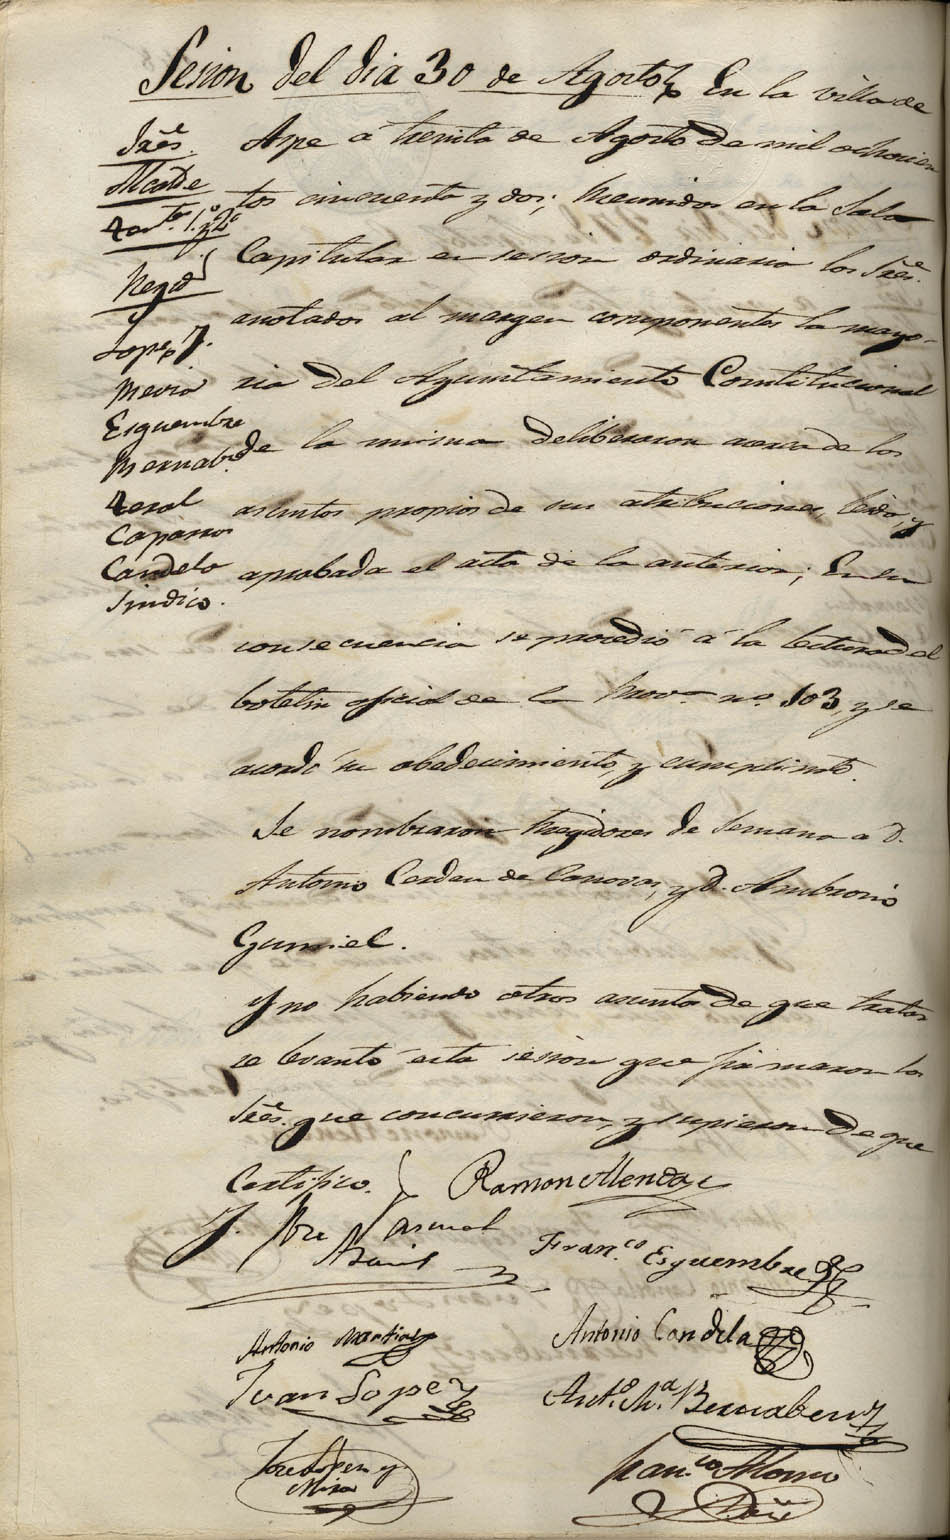 Sesion del dia 30 de Agosto
En la villa de
Aspe á treinta de Agosto de mil ochocien
tos cincuenta y dos; Reunidos en la Sala
Capitular en sesion ordinaria los Sres.
anotados al margen componentes la mayo-
ria del Ayuntamiento Constitucional
de la misma deliberaron acerca de los
asuntos propios de sus atribuciones, leida, y
aprobada el acta de la anterior; En su
consecuencia se procedió á la lectura del
boletin oficial de la Prova. nº. 103, y se
acordó su obedecimiento, y cumplimto.
Se nombraron Regidores de Semana a D.
Antonio Cerdan de Canovas, y D. Ambrosio
Gumiel.
Y no habiendo otros asuntos de que tratar
se levantó esta sesion que firmaron los
Sres. que concurrieron, y supieron de que
Certifico.
Sres.
Alcalde
1.º y 2.º
Regid
y
Lopez
Mexia
Esquembre
Bernabe
Caparros
Candela
Sindico.
Ramon
Jose Pascual
Franco. Esquembre
Antonio Martinez
Antonio Candela
Juan Lopez
Anto. Ma. Bernabeu
Jose Lopez y
Mira
Franco. Alonso